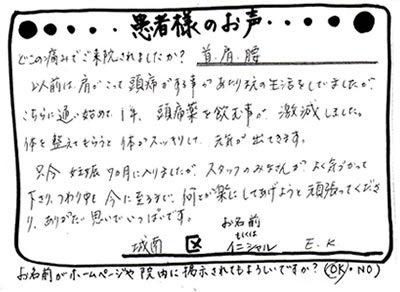 患者様のお声
どこの痛みでご来院されましたか? 首.肩.腰
以前は、肩がこって頭痛がする事があたり前の生活をしてましたが、
こちらに通い始めて1年、頭痛薬を飲む事が、激減しました。
体を整えてもらうと体がスッキリして、元気が出てきます。
只今妊娠7ヵ月に入りましたが、スタッフのみなさんがよく気づかって
下さり、つわり中も今に至るまで、何とか楽にしてあげようと頑張ってくださ
り、ありがたい思いでいっぱいです。
城南 区 お名前もしくはイニシャル E.K
お名前がホームページや院内に掲示されてもよろしいですか?(OK・NO)